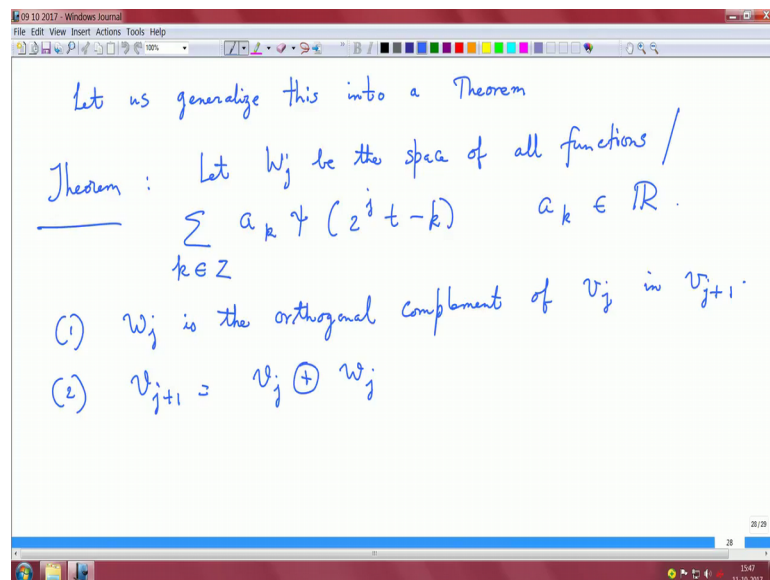 09 10 2017 - Windows Journal
File Edit View Insert Actions Tools Help
100%
Let us generalize this into a Theorem
Theorem : Let W_j be the space of all functions /
∑ a_k ψ (2^j t - k) a_k ∈ ℝ .
k ∈ Z
(1) W_j is the orthogonal complement of V_j in V_{j+1}.
(2) V_{j+1} = V_j ⊕ W_j
28/29
28
15:47
11-10-2017